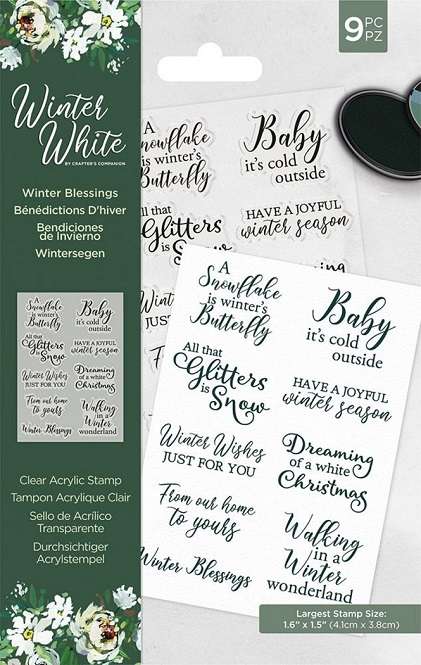 9 PC
PZ
Winter
White
BY CRAFTER'S COMPANION
Winter Blessings
Bénédictions D'hiver
Bendiciones
de Invierno
Wintersegen
A
Snowflake
is winter's
Butterfly
Baby
it's cold
outside
All that
Glitters
is Snow
HAVE A JOYFUL
winter season
Winter Wishes
JUST FOR YOU
Dreaming
of a white
Christmas
From our home
to yours
Walking
in a
Winter
wonderland
Winter Blessings
Clear Acrylic Stamp
Tampon Acrylique Clair
Sello de Acrílico
Transparente
Durchsichtiger
Acrylstempel
A
Snowflake
is winter's
Butterfly
Baby
it's cold
outside
All that
Glitters
is Snow
HAVE A JOYFUL
winter season
A
Snowflake
is winter's
Butterfly
Baby
it's cold
outside
All that
Glitters
is Snow
HAVE A JOYFUL
winter season
Winter Wishes
JUST FOR YOU
Dreaming
of a white
Christmas
From our home
to yours
Walking
in a
Winter
wonderland
Winter Blessings
Largest Stamp Size:
1.6" x 1.5" (4.1cm x 3.8cm)